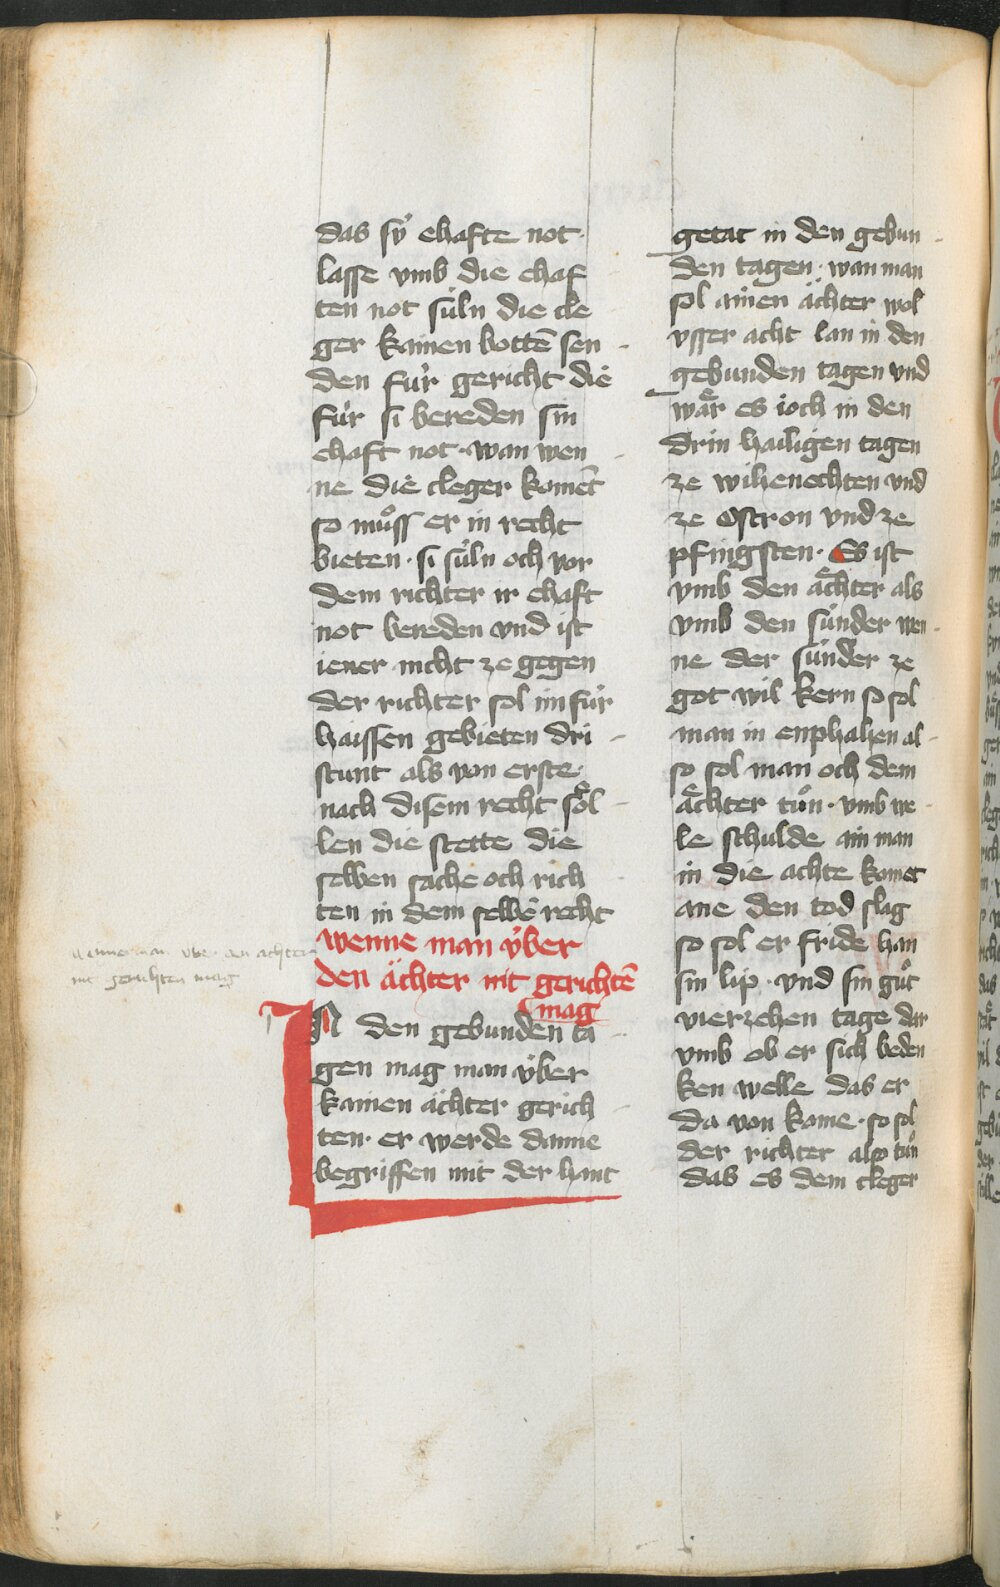 das sÿ ehafte not·
lasse vmb die ehaf
ten not süln die cle
ger kainen bottē sen -
den für gericht die
für si bereden sin
ehaft not · wan wen -
ne die cleger komēt
so mu̇ss er in recht
bieten · si süln och vor
dem richter ir ehaft
not bereden vnd ist
iener nicht ze gegen
der richter sol im für
haissen gebieten dri -
stunt als von erste·
nach disem recht söl -
len die stette die
selben sache och rich
ten in dem selbē recht
wenne man v̈ber
den ächter nit gerichtē
mag
wanne man vber den achter
nit gerichten mag
IN den gebunden ta -
gen mag man v̈ber
kainen ächter gerich -
ten· er werde danne
begriffen mit der hant
getat in den gebun -
den tagen · wan man
sol ainen ächter wol
vsser acht lan in den
gebunden tagen vnd
wär es ioch in den
drin hailigen tagen
ze wihenechten vnd
ze ostron vnd ze
pfingsten · Es ist
vmb den ächter als
vmb den sünder wen -
ne der sünder ze
got wil kern so sol
man in enphahen al -
so sol man och dem
ächter tůn · vmb we -
le schulde ain man
in die achte komet
ane den tod slag
so sol er fride han
sin lip · vnd sin gůt
vierzehen tage dar
vmb ob er sich beden
ken welle das er
da von kome · so sol
der richter also tůn
das es dem cleger